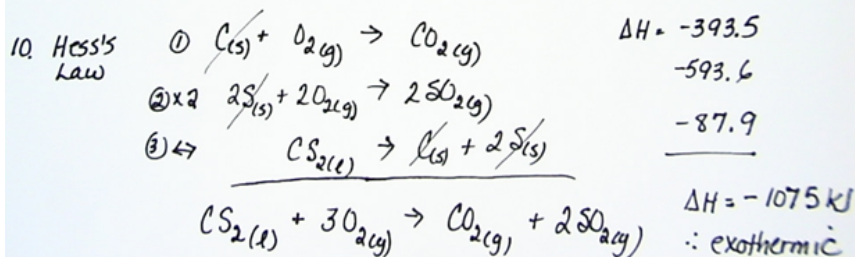 10. Hess's Law ① C(s) + O₂(g) → CO₂(g) ΔH = -393.5
②x2 2S(s) + 2O₂(g) → 2SO₂(g) -593.6
③↔ CS₂(l) → C(s) + 2S(s) -87.9
CS₂(l) + 3O₂(g) → CO₂(g) + 2SO₂(g) ΔH = -1075 kJ
∴ exothermic